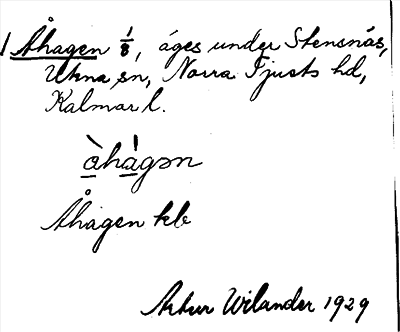 1 Åhagen 1/8, äges under Stensnäs,
Ukna sn, Norra Tjusts hd,
Kalmar l.
àhágən
Åhagen kb
Artur Wilander 1929